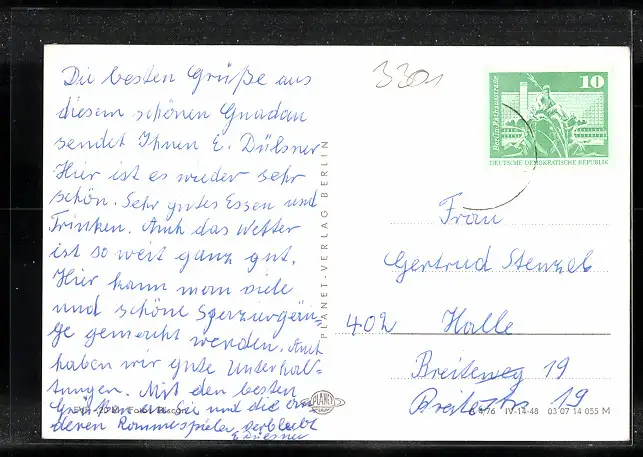 Die besten Grüße aus
diesem schönen Gnadau
sendet Ihnen E. Dülsner
Hier ist es wieder sehr
schön. Sehr gutes Essen und
Trinken. Auch das Wetter
ist so weit ganz gut.
Hier kann man viele
und schöne Sparziergän-
ge gemacht werden. Auch
haben wir gute Unterhal-
tungen. Mit den besten
Grüßen an Sie und die an
deren Rommespieler verbleibt
E. Dülsner
PLANET-VERLAG BERLIN
PLANET
3301
10
Berlin, Rathausstraße
DEUTSCHE DEMOKRATISCHE REPUBLIK
Frau
Gertrud Stenzel
402 Halle
Breiteweg 19
Breitestr 19
/76 IV-14-48 03 07 14 055 M